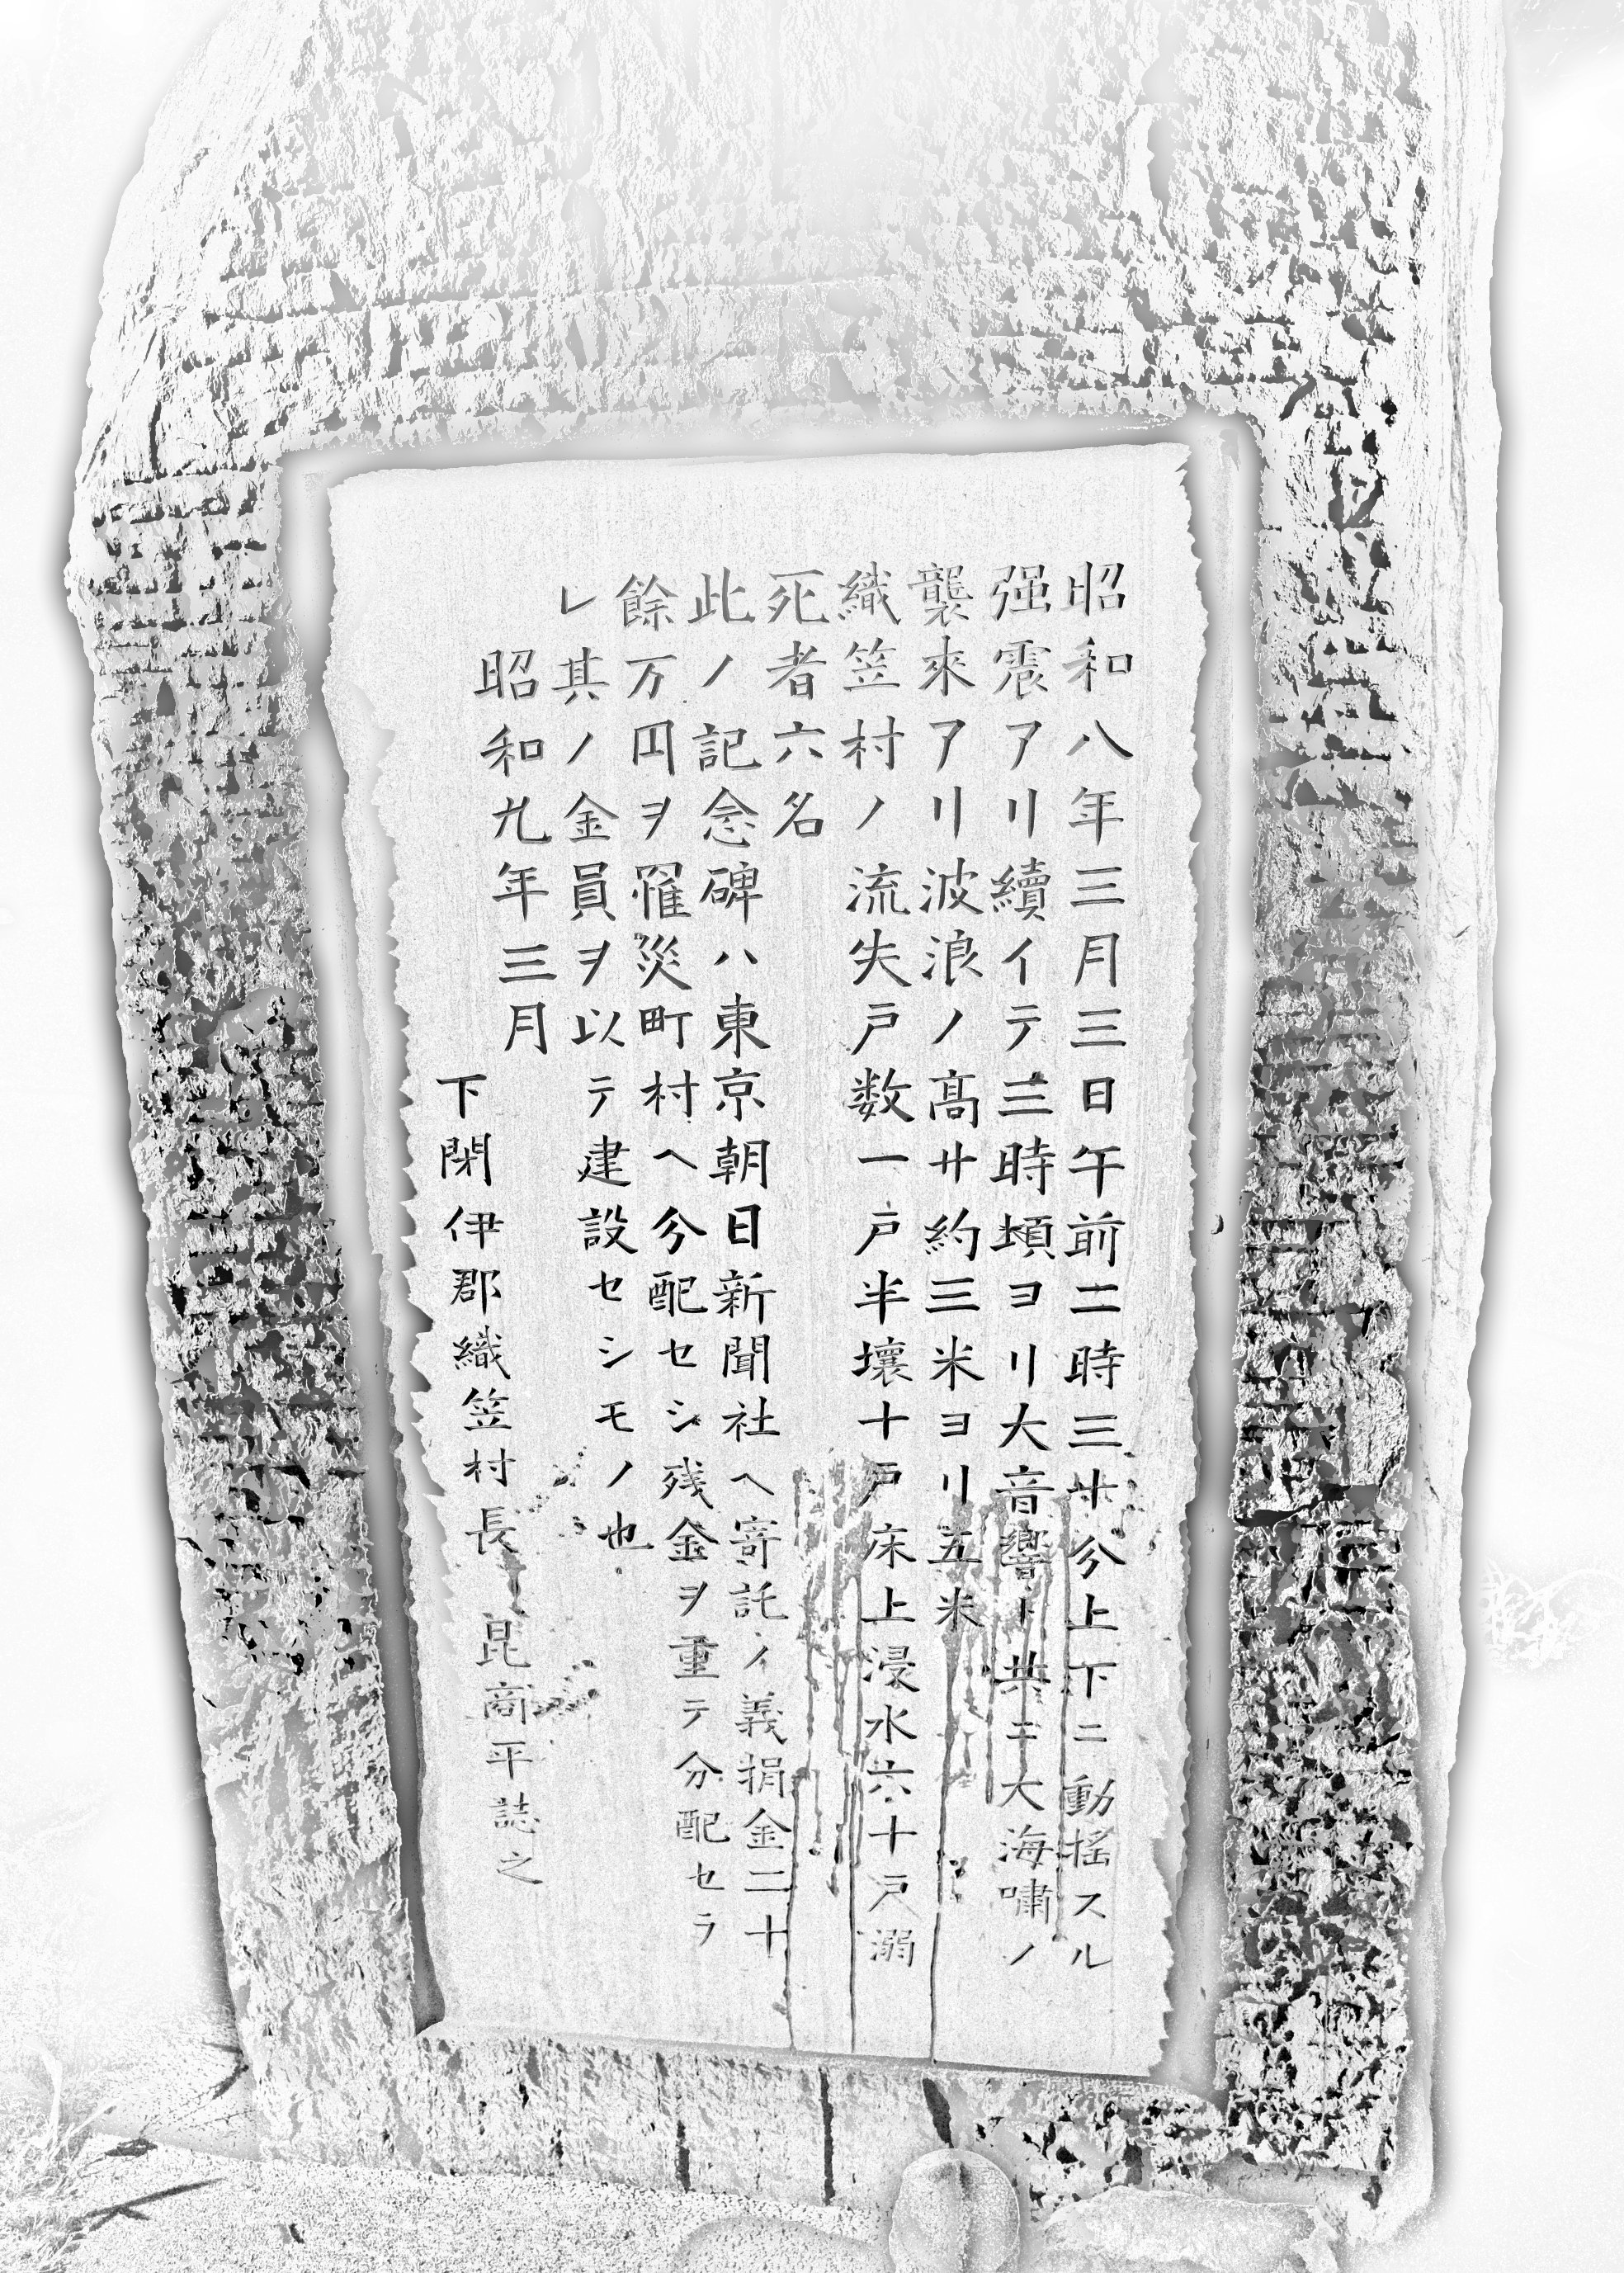 昭和八年三月三日午前二時三十分上下ニ動揺スル
强震アリ續イテ三時頃ヨリ大音響ト共ニ大海嘯ノ
襲來アリ波浪ノ高サ約三米ヨリ五米
織笠村ノ流失戸数一戸半壞十戸床上浸水六十戸溺
死者六名
此ノ記念碑ハ東京朝日新聞社ヘ寄託ノ義捐金二十
餘万円ヲ罹災町村ヘ分配セシ残金ヲ重テ分配セラ
レ其ノ金員ヲ以テ建設セシモノ也
昭和九年三月
下閉伊郡織笠村長 昆商平誌之